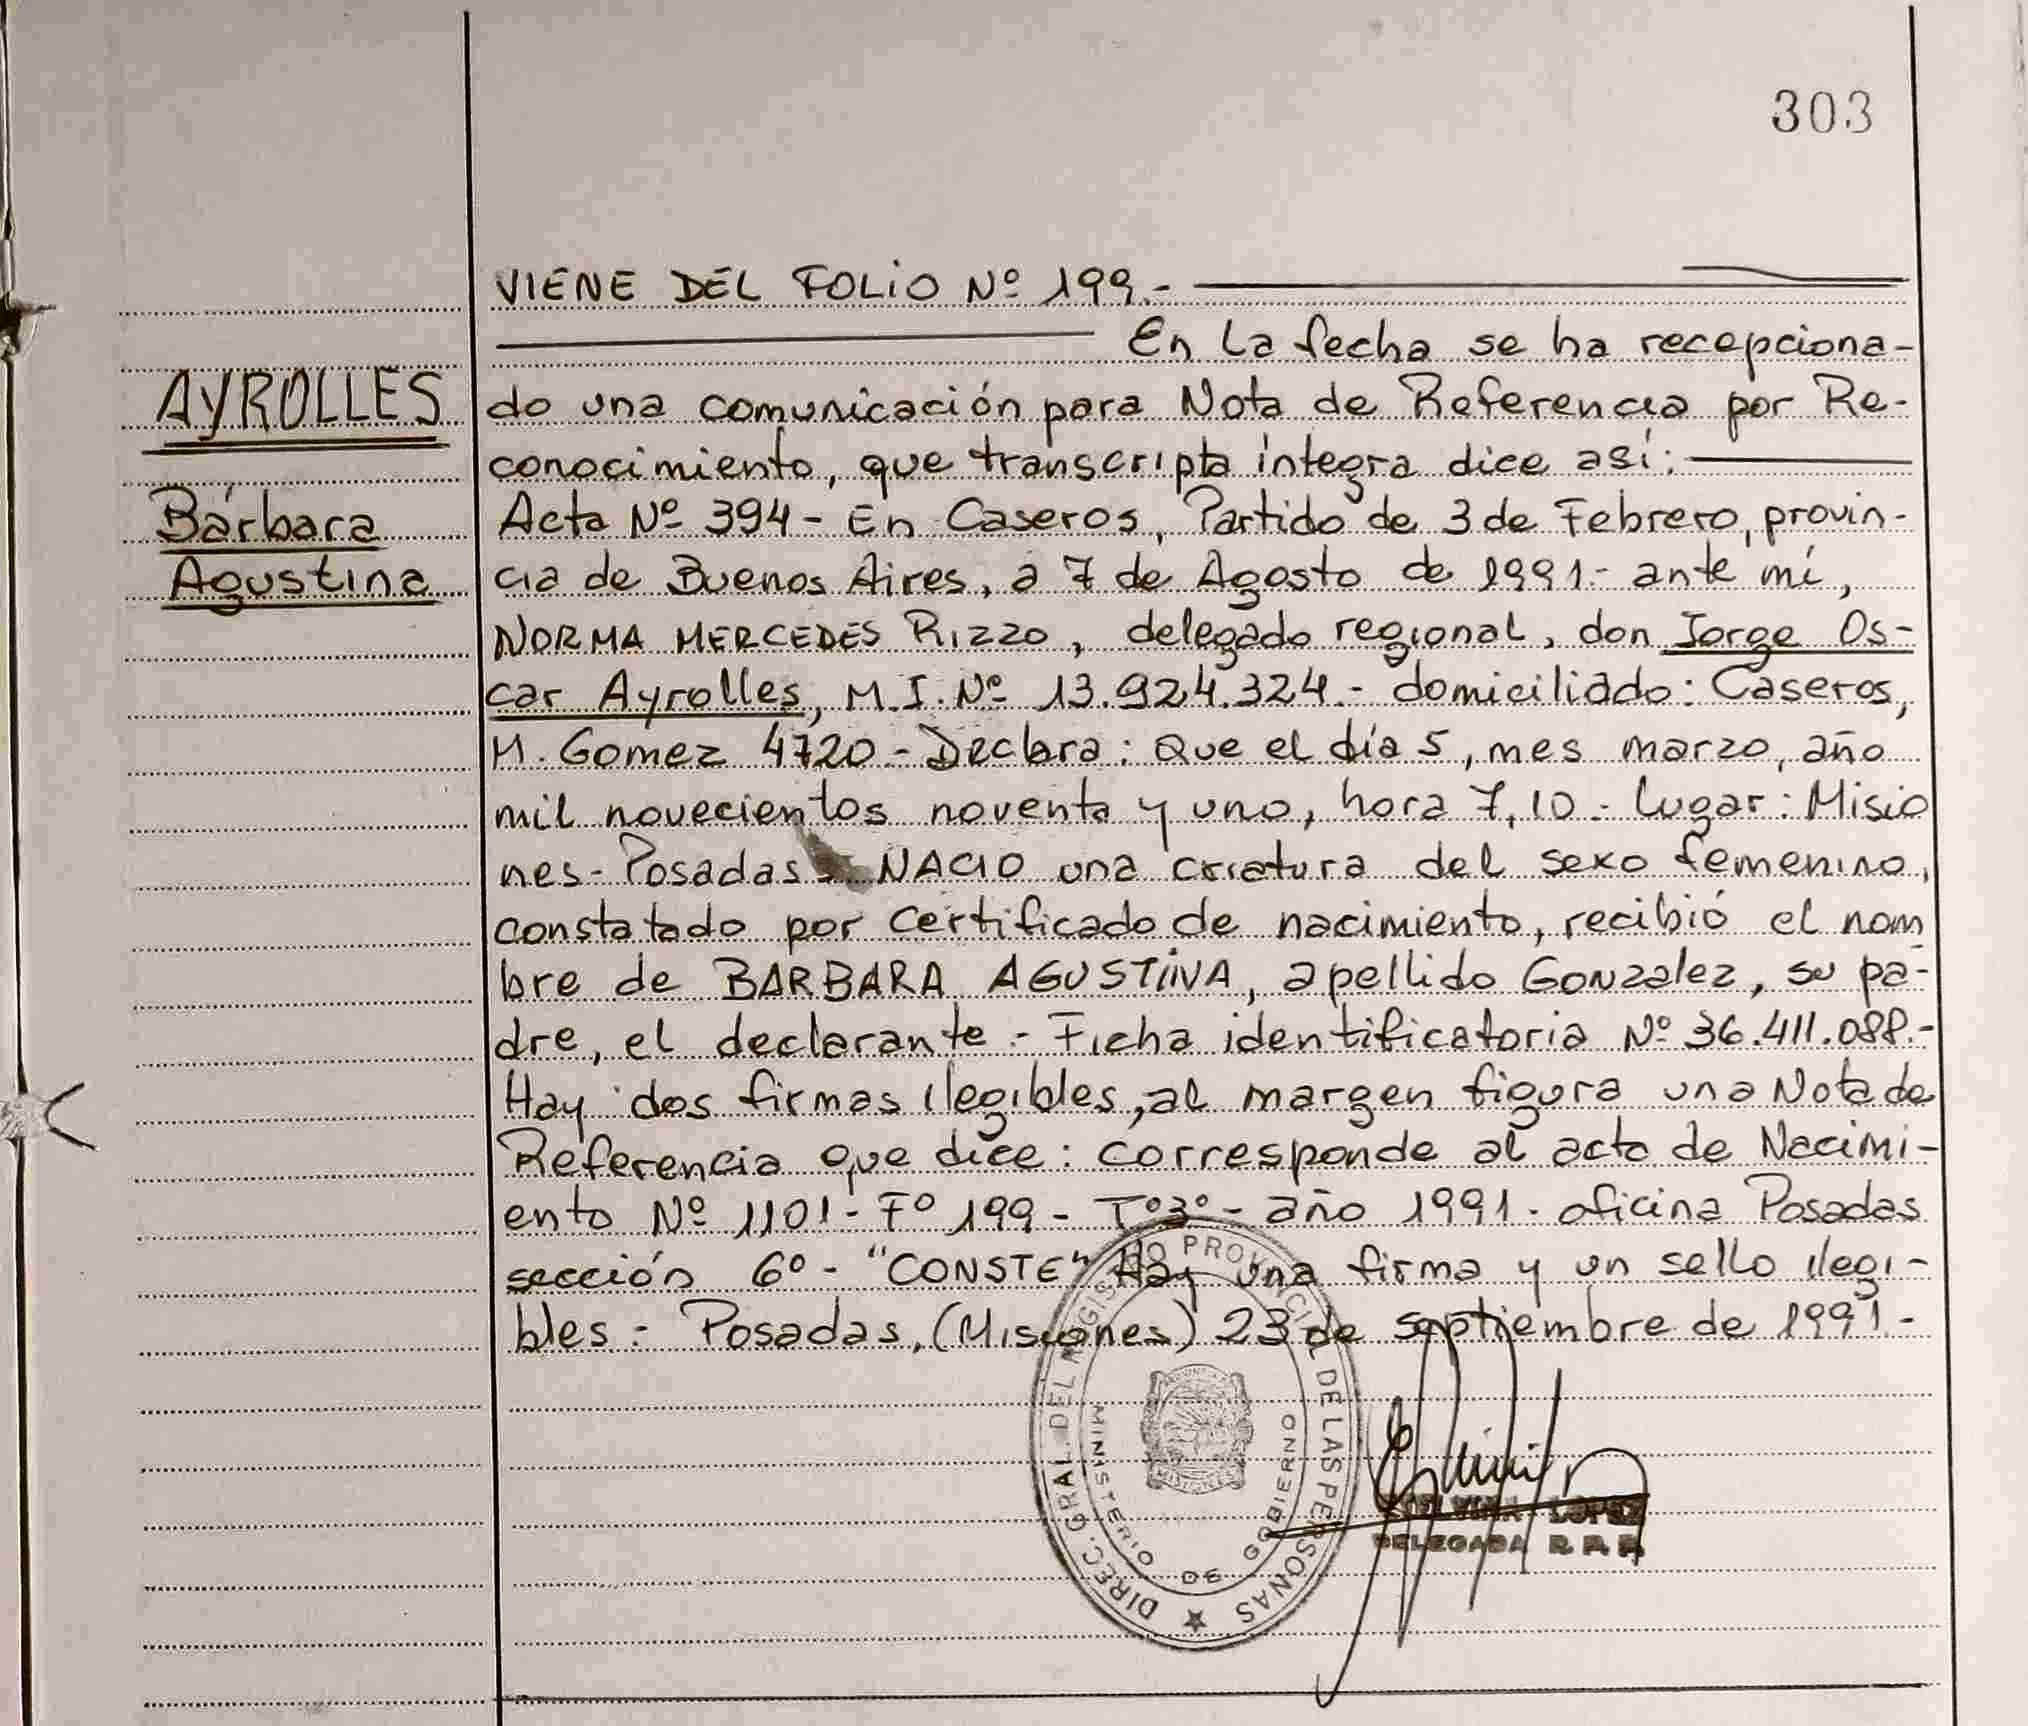 303
VIENE DEL FOLIO Nº 199.-
En la fecha se ha recepciona-
AYROLLES
do una comunicación para Nota de Referencia por Re-
conocimiento, que transcripta íntegra dice así:
Bárbara
Acta Nº 394- En Caseros, Partido de 3 de Febrero, provin-
Agustina
cia de Buenos Aires, a 7 de Agosto de 1991.- ante mí,
NORMA MERCEDES RIZZO, delegado regional, don Jorge Os-
car Ayrolles, M.I. Nº 13.924.324.- domiciliado: Caseros,
M. Gomez 4720 - Declara: Que el día 5, mes marzo, año
mil novecientos noventa y uno, hora 7,10.- lugar: Misio
nes- Posadas.- NACIO una criatura del sexo femenino,
constatado por certificado de nacimiento, recibió el nom
bre de BARBARA AGUSTINA, apellido Gonzalez, su pa-
dre, el declarante.- Ficha identificatoria Nº 36.411.088.-
Hay dos firmas ilegibles, al margen figura una Nota de
Referencia que dice: corresponde al acta de Nacimi-
ento Nº 1101- Fº 199 - Tº3º- año 1991. oficina Posadas
sección 6º - "CONSTE" Hay una firma y un sello ilegi-
bles: Posadas, (Misiones) 23 de septiembre de 1991.-
DIREC. GRAL. DEL REGISTRO PROVINCIAL DE LAS PERSONAS
MINISTERIO DE GOBIERNO
MISIONES
LOPEZ
DELEGADA R.P.P.